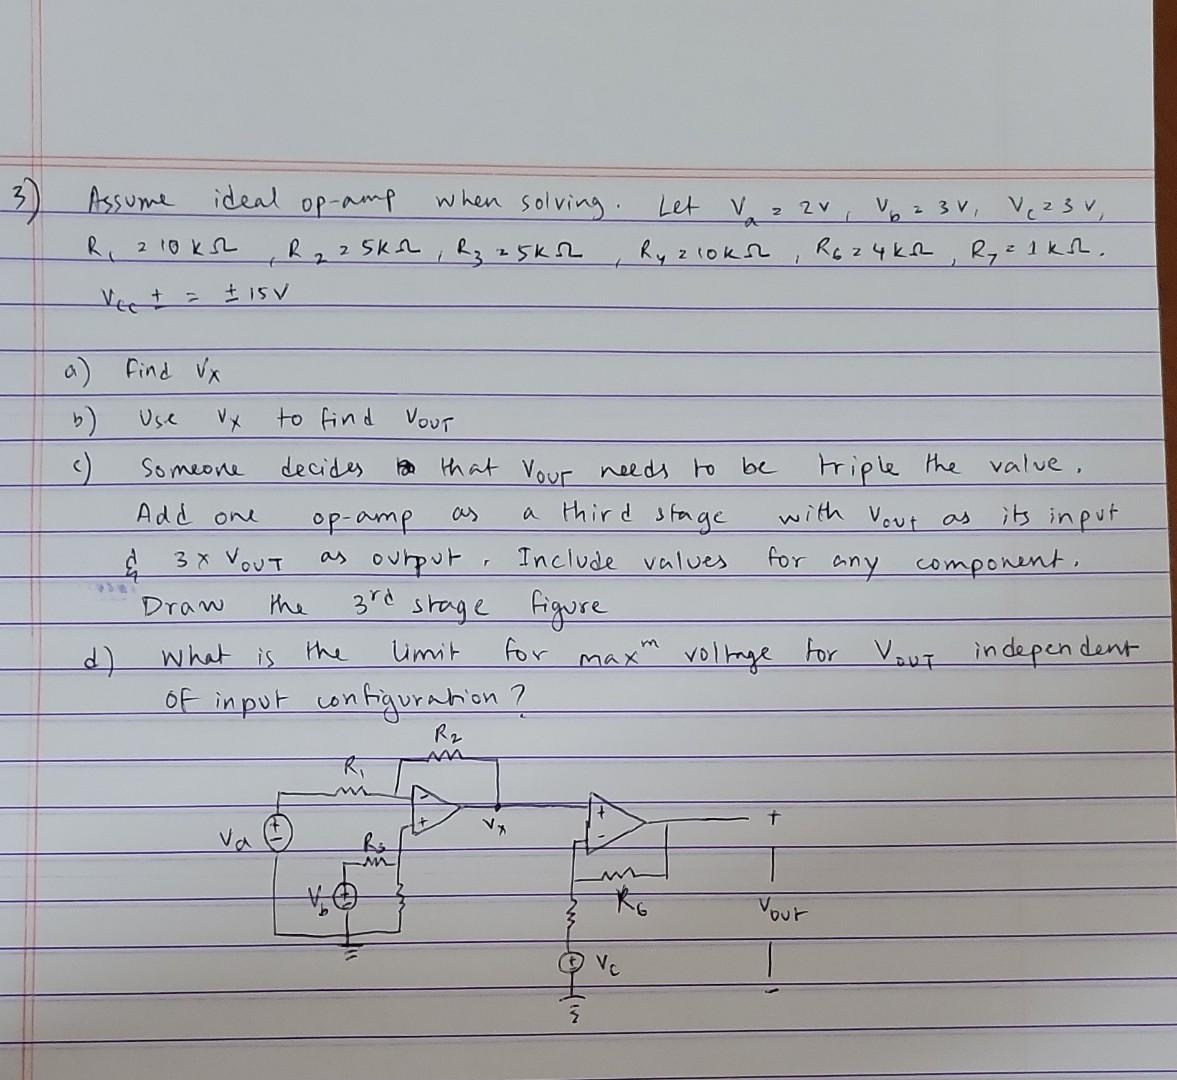 3) Assume ideal op-amp when solving. Let Va = 2V, Vb = 3V, Vc = 3V,
R1 = 10 kΩ, R2 = 5kΩ, R3 = 5kΩ, R4 = 10kΩ, R6 = 4kΩ, R7 = 1kΩ.
Vcc ± = ± 15V
a) Find Vx
b) Use Vx to find VOUT
c) Someone decides that VOUT needs to be triple the value.
Add one op-amp as a third stage with Vout as its input
& 3 x VOUT as output. Include values for any component.
Draw the 3rd stage figure
d) What is the limit for maxm voltage for VOUT independent
of input configuration?
R2
R1
- +
Vx
+ -
+
Va + -
R3
Vb + -
R6
Vout
+ Vc
-